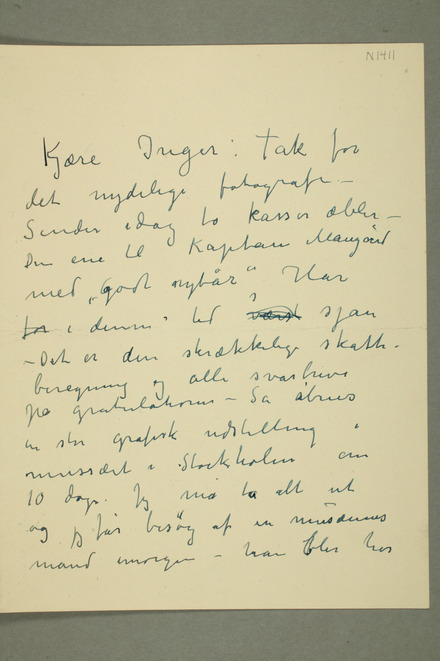 N1411
Kjære Inger: Tak for
det nydelige fotografi –
Sender idag to kasser æbler –
Den ene til Kaptan
med „godt nytår" Har
i denne tid sjau
– Det er den skrækkelige skatte-
beregning og alle svarbreve
på gratulationer – Så åbnes
en stor grafisk udstilling i
museet i Stockholm om
10 dage. Jeg må ta alt ut
og jeg får besøg af en museums
mand imorgen – han blir hos